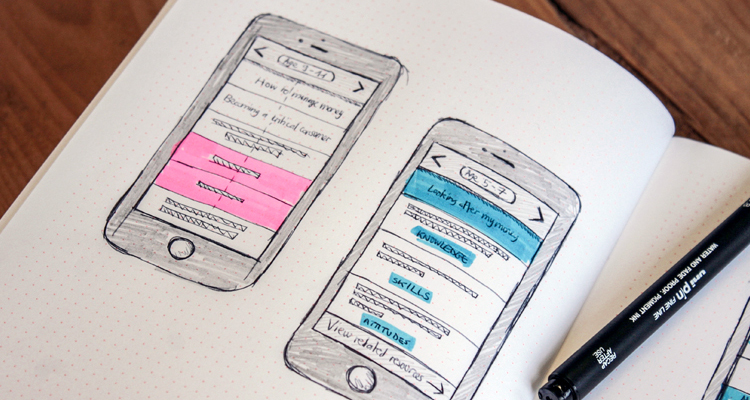 < Age 9-11 >
How to manage money
Becoming a critical consumer
< Age 5-7 >
Looking after my money
KNOWLEDGE
SKILLS
ATTITUDES
View related resources →
uni pin FINE LINE
WATER AND FADE PROOF, PIGMENT INK
RECAP
AFTER
USE